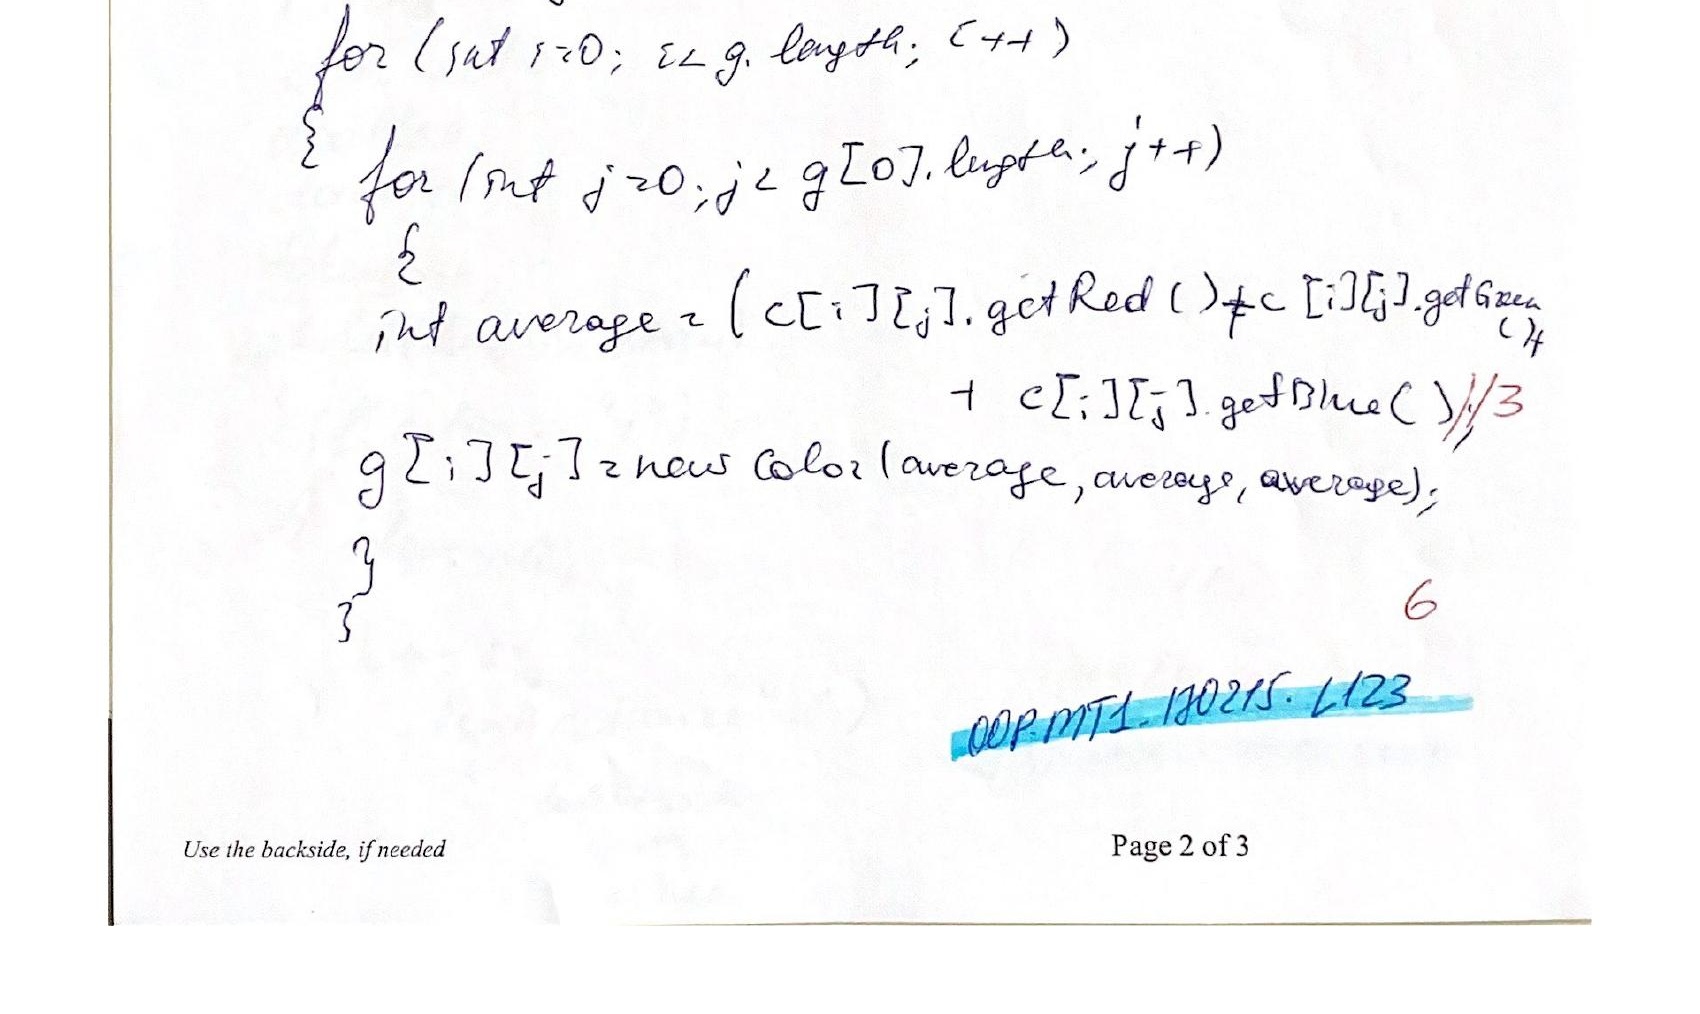 for (int i=0; i< g.length; i++)
{
for (int j=0; j< g[0].length; j++)
{
int average = (c[i][j].getRed()+c[i][j].getGreen
()+
+ c[i][j].getBlue())//3
g[i][j]=new Color(average, average, average);
}
}
6
OOP.MT1.170215.L123
Use the backside, if needed
Page 2 of 3